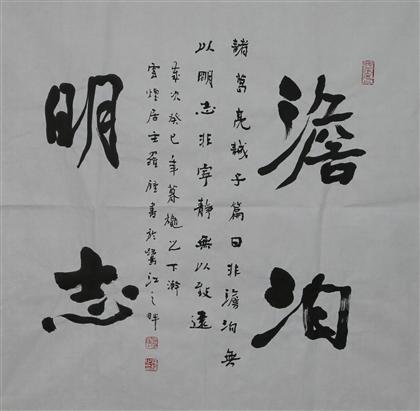 澹泊
明志
諸葛亮誡子篇曰非澹泊無
以明志非寧靜無以致遠
歲次癸巳年暮秋之下浣
雲煙居主羅鍾書於鷺江之畔